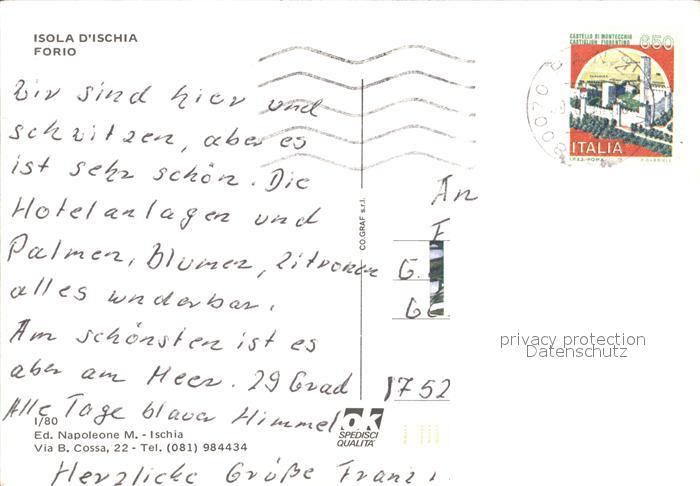 ISOLA D'ISCHIA
FORIO
Wir sind hier und
schwitzen, aber es
ist sehr schön. Die
Hotelanlagen und
Palmen, Blumen, Zitronen
alles wnderbar.
Am schönsten ist es
aber am Meer. 29 Grad
Alle Tage blauer Himmel
I/80
Ed. Napoleone M. - Ischia
Via B. Cossa, 22 - Tel. (081) 984434
Herzliche Grüße Franz
CO.GRAF s.r.l.
OK
SPEDISCI
QUALITA'
CASTELLO DI MONTECCHIO
CASTIGLION FIORENTINO
650
ITALIA
An
F
G.
Ge
1752
privacy protection
Datenschutz